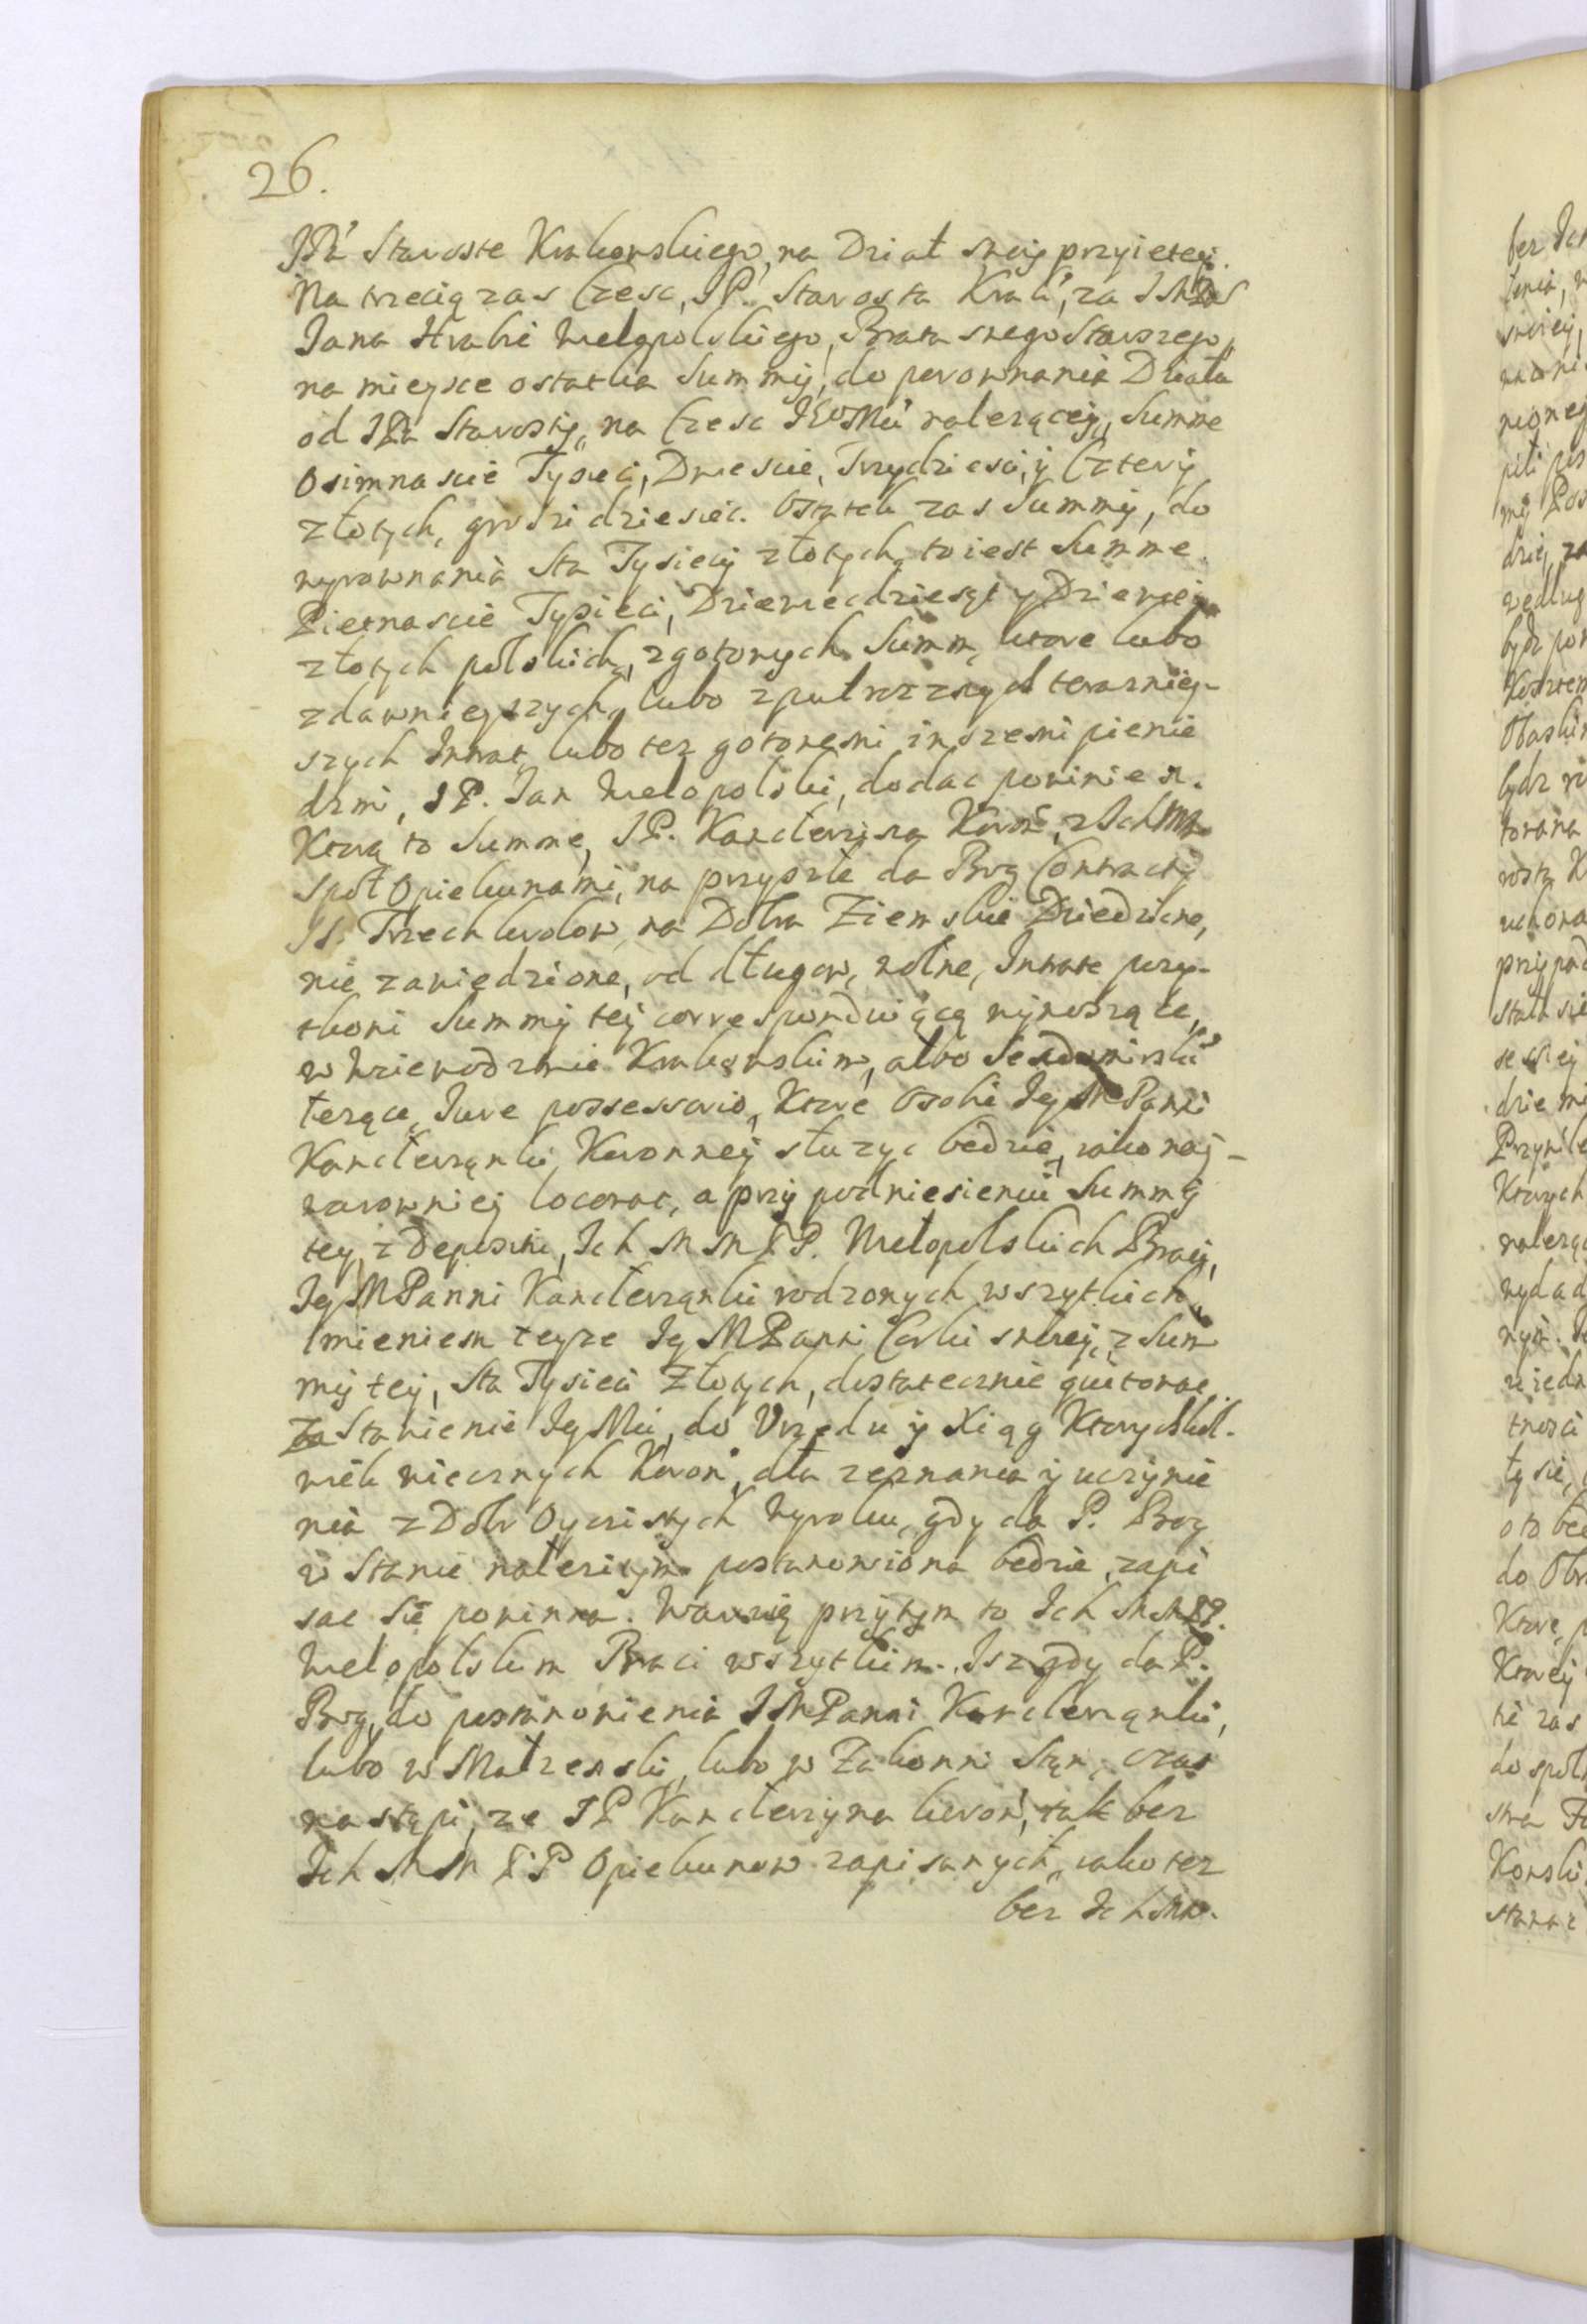 26.
JPa Staroste Krakowskiego, na Dział swoy przyietey.
Na trzecią zas Częsc, JP. Starosta Krak', za JMPa
Jana Hrabi Wielopolskiego, Brata swego Starszego,
na mieysce ostatka Summy, do porownania Działu
od JPa Starosty, na Częsc JEoMci należącey, Summe
Osimnascie Tysieci, Dwiescie, Trzydziesci, y Cztery
złotych, groszi dziesiec. Ostatek zas Summy, do
wyrownania Sta Tysiecy złotych, to iest Summe
Pietnascie Tysieci, Dziewiecdziesąt y Dziewiec
złotych polskich, z gotowych Summ, ktore lubo
z dawnieyszych, lubo z pułroznych terazniey-
szych Intrat, lubo tez gotowemi inszemi pienie
dzmi, JP. Jan Wielopolski, dodac powinien.
Ktorą to Summe, JP. Kanclerzyna Koron', z Ich MM
Społ Opiekunami, na przyszłe da Bog Contracty
SS. Trzech krolow, na Dobra Ziemskie Dziedziczne,
nie zawiedzione, od długow, wolne, Intrate pray-
tkowi Summy tey correspondwiącą wynoszące,
w Wziewodzwie Krakowskim, albo Sendomirski'
lezące, Jure possessorio, Ktore Osobie Jey M Panni
Kanclerzanki, Koronney służyc bedzie, iako nay-
zarowniey locowac, a przy podniesieniu Summy
tey, z Depositu, Ich M M PP. Wielopolskich Braci,
Jey M Panni Kanclerzanki rodzonych wszytkich,
Imieniem teyze Jey M Panni Corki swoiey, z Sum
my tey, Sta Tysieci Złotych, dostatecznie quitowac.
Za Stawienie Jey Mci, do Vrzedu y Xiąg Ktorychkol-
wiek wiecznych Koron', dla zeznania y uczynie
nia z Dobr Oyczistych Wyroku, gdy da P. Bog
w Stanie nalezitym postanowiona bedzie, zapi
sac Sie powinna. Waruią przytym to Ich M M PP.
Wielopolskim Braci wszytkim. Isz gdy da P.
Bog, do postanowienia JMPanni Kanclerzanki,
lubo w Małzenski, lubo w Zakonni Stan, czas
nastąpi, ze JP Kanclerzyna koron', tak bez
Ich M M PP Opiekunow zapisanych, iako tez
bez Ich MM.